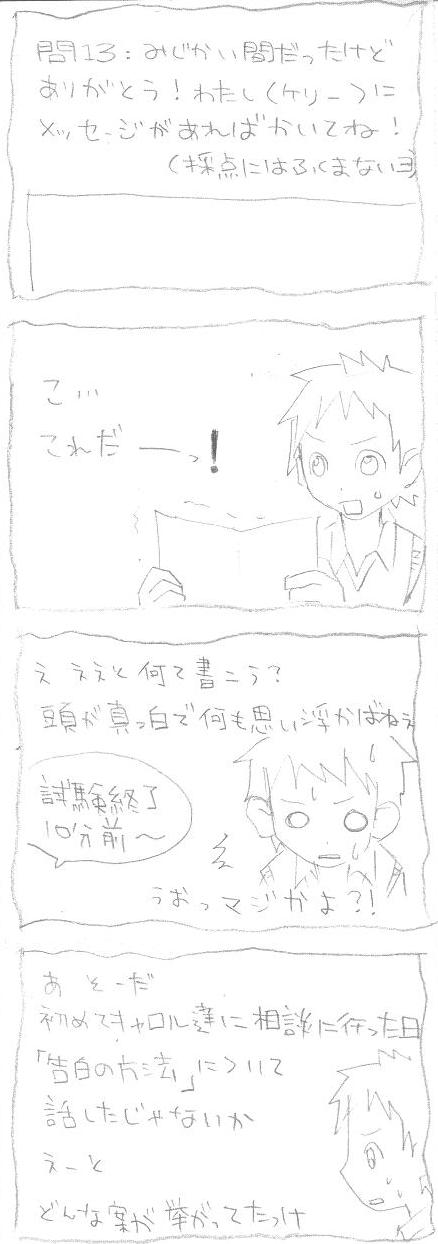 問13:みじかい間だったけど
ありがとう!わたし(ケリー)に
メッセージがあればかいてね!
(採点にはふくまないヨ)
こ…
これだーっ!
え ええと何て書こう?
頭が真っ白で何も思い浮かばねぇ
試験終了
10分前〜
うおっマジかよ?!
あ そーだ
初めてキャロル達に相談に行った日
「告白の方法」について
話したじゃないか
えーと
どんな案が挙がってたっけ